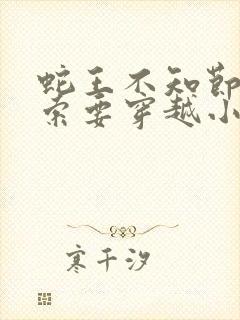 蛇王不知节
索要穿越小
寒千汐